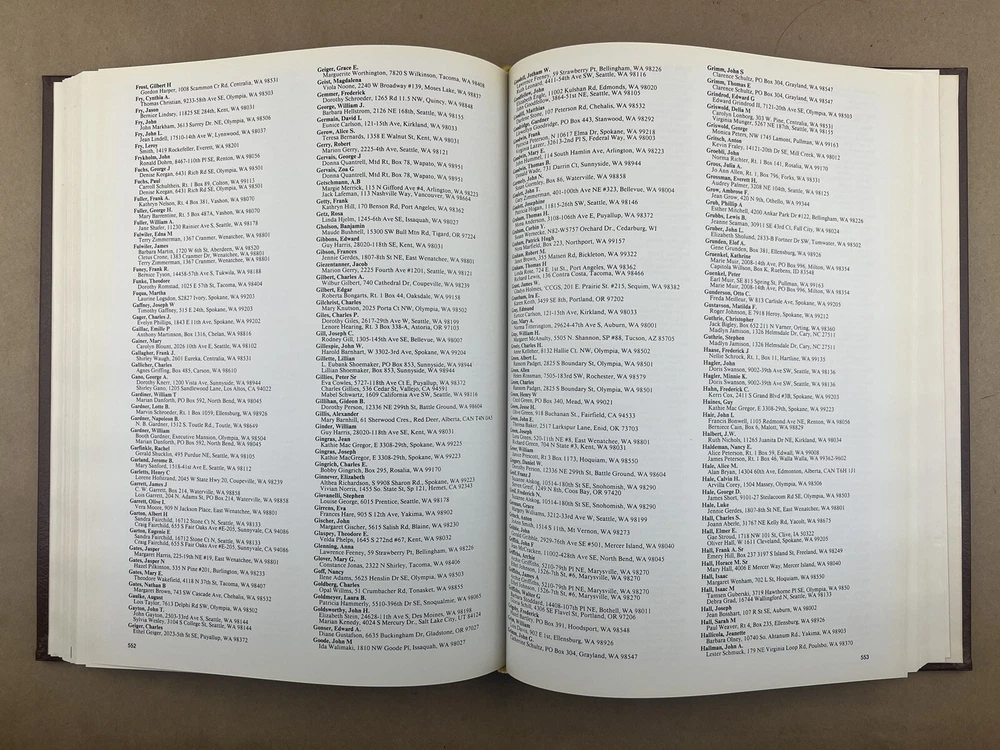 Frost, Gilbert H
Gordon Harper, 1008 Scammon Cr Rd, Centralia, WA 98531
Fry, Cynthia A.
Thomas Christian, 9233-58th Ave SE, Olympia, WA 98503
Fry, Jason
Bernice Lindsey, 11825 SE 284th, Kent, WA 98031
Fry, John
John Markham, 3613 Surrey Dr. NE, Olympia, WA 98506
Fry, John L.
Jean Lindell, 17510-14th Ave W, Lynnwood, WA 98037
Fry, Leroy
Smith, 1419 Rockefeller, Everett, WA 98201
Frykholm, John
Ronald Dohm, 8467-110th Pl SE, Renton, WA 98056
Fuchs, George J
Denise Keegan, 6431 Rich Rd SE, Olympia, WA 98501
Fuchs, Paul
Carroll Schultheis, Rt. 1 Box 89, Colton, WA 99113
Denise Keegan, 6431 Rich Rd SE, Olympia, WA 98501
Fuller, Frank A.
Kathryn Nelson, Rt. 4 Box 381, Vashon, WA 98070
Fuller, George H.
Mary Barrentine, Rt. 5 Box 487A, Vashon, WA 98070
Fuller, William A.
Jane Shafer, 11230 Rainier Ave S, Seattle, WA 98178
Fulwiler, Edna M
Terry Zimmerman, 1367 Cranmer, Wenatchee, WA 98801
Fulwiler, James
Barbara Martin, 1720 W 6th St, Aberdeen, WA 98520
Cletus Crone, 1383 Cranmer Dr, Wenatchee, WA 98801
Terry Zimmerman, 1367 Cranmer, Wenatchee, WA 98801
Funey, Frank R.
Bernice Tyson, 14458-57th Ave S, Tukwila, WA 98188
Funks, Theodore
Dorothy Romstad, 1025 E 57th, Tacoma, WA 98404
Fuqua, Martha
Laurine Logsdon, S2827 Ivory, Spokane, WA 99203
Gaffney, Joseph W
Timothy Gaffney, 515 E 24th, Spokane, WA 99203
Gager, Charles J.
Evelyn Phillips, 1843 E 11th Ave, Spokane, WA 99202
Gaillac, Emile P
Anthony Martinson, Box 1316, Chelan, WA 98816
Gainer, Mary
Carolyn Blount, 2026 10th Ave E, Seattle, WA 98102
Gallagher, Frank J.
Shirley Waugh, 2601 Eureka, Centralia, WA 98531
Gallicher, Charles
Agnes Griffing, Box 485, Carson, WA 98610
Gano, George A.
Dorothy Knerr, 1200 Vista Ave, Sunnyside, WA 98944
Shirley Gano, 1205 Sandlewood Lane, Los Altos, CA 94022
Gardiner, William T
Marian Danforth, PO Box 592, North Bend, WA 98045
Gardner, Lotte B.
Marvin Schroeder, Rt. 1 Box 1059, Ellensburg, WA 98926
Gardner, Napoleon B.
N. B. Gardner, 1512 S. Toutle Rd., Toutle, WA 98649
Gardner, William
Booth Gardner, Executive Mansion, Olympia, WA 98504
Marian Danforth, PO Box 592, North Bend, WA 98045
Garfinkle, Rachel
Gerald Shucklin, 495 Purdue NE, Seattle, WA 98105
Garland, Jerome B.
Mary Sanford, 1518-41st Ave E, Seattle, WA 98112
Garletts, Henry C
Lorene Hotherand, 2045 W State Hwy 20, Coupeville, WA 98239
Garrett, James J
C. W. Garrett, Box 214, Waterville, WA 98858
Lois Garrett, 204 N. Adams St, PO Box 214, Waterville, WA 98858
Garrett, Olive L
Vera Moore, 909 N Jackson Place, East Wenatchee, WA 98801
Garton, Albert H
Sandra Fairchild, 16712 Stone Ct N, Seattle, WA 98133
Craig Fairchild, 655 S Fair Oaks Ave #E-205, Sunnyvale, CA 94086
Garton, Eugenie E
Sandra Fairchild, 16712 Stone Ct N, Seattle, WA 98133
Craig Fairchild, 655 S Fair Oaks Ave #E-205, Sunnyvale, CA 94086
Gates, Jasper
Margaret Harris, 225-19th NE #19, East Wenatchee, WA 98801
Gates, Jasper N
Hazel Pilkinton, 535 N Pine #201, Burlington, WA 98233
Gates, Mary E.
Theodore Wakefield, 4118 N 37th St, Tacoma, WA 98407
Gates, Nathan B
Margaret Brown, 743 SW Cascade Ave, Chehalis, WA 98532
Gautke, August
Lon Taylor, 7613 Delphi Rd SW, Olympia, WA 98502
Gayton, John T.
John Gayton, 2503 3rd Ave S, Seattle, WA 98144
Sylvia Wesley, 3104 S College St, Seattle, WA 98144
Geiger, Charles
Ethel Geiger, 2023-5th St SE, Puyallup, WA 98372
552
Geiger, Grace E.
Marguerite Worthington, 7820 S Wilkinson, Tacoma, WA 98408
Geist, Magdalena
Viola Noone, 2240 W Broadway #139, Moses Lake, WA 98837
Gemmer, Frederick
Dorothy Schroeder, 1265 Rd 11.5 NW, Quincy, WA 98848
George, William J
Barbara Hellstrom, 2126 NE 168th, Seattle, WA 98155
Germain, David L
Eunice Carlson, 121-15th Ave, Kirkland, WA 98033
Gerow, Alice S.
Teresa Bernards, 1358 E Walnut St, Kent, WA 98031
Gerry, Robert
Marion Gerry, 2225-4th Ave, Seattle, WA 98121
Gervais, George J
Donna Quantrell, Mtd Rt, Box 78, Wapato, WA 98951
Gervais, Zoa G
Donna Quantrell, Mtd Rt, Box 78, Wapato, WA 98951
Getschmann, A.B
Margie Merrick, 115 N Gifford Ave #4, Arlington, WA 98223
Jack Lafeman, 113 Nashville Way, Vancouver, WA 98664
Getty, Frank
Kathryn Hill, 170 Benson Rd, Port Angeles, WA 98362
Getz, Rosa
Linda Hjelm, 1245-6th Ave SE, Issaquah, WA 98027
Gholson, Banjamin
Maude Bushnell, 15300 SW Bull Mtn Rd, Tigard, OR 97224
Gibbons, Edward
Guy Harris, 28020-118th SE, Kent, WA 98031
Gibson, Frances
Jennie Gerdes, 1807-8th St NE, East Wenatchee, WA 98801
Giezentanner, Jacob
Marion Gerry, 2225 Fourth Ave #1201, Seattle, WA 98121
Gilbert, Charles A.
Wilbur Gilbert, 740 Cathedral Dr, Coupeville, WA 98239
Gilbert, Edgar
Roberta Bongarts, Rt. 1 Box 44, Oaksdale, WA 99158
Gilchrist, Charles
Mary Knutson, 2025 Porta Ct NW, Olympia, WA 98502
Giles, Charles P
Dorothy Giles, 2617-29th Ave W, Seattle, WA 98199
Lenore Hearing, Rt. 3 Box 338-A, Astoria, OR 97103
Gill, Joseph C.
Rodney Gill, 1305-145th Ave SE, Bellevue, WA 98007
Gillespie, John W.
Harold Barnhart, W 3302-3rd Ave, Spokane, WA 99204
Gillette, Lillian
L. Eubank Shoemaker, PO Box 853, Sunnyside, WA 98944
Lillian Shoemaker, Box 853, Sunnyside, WA 98944
Gillies, Peter Sr
Eva Cowles, 5727-118th Ave Ct E, Puyallup, WA 98372
Charles Gillies, 536 Cedar St, Vallejo, CA 94591
Mabel Schwartz, 1609 California Ave SW, Seattle, WA 98116
Gilliban, Gideon B.
Dorothy Person, 12336 NE 299th St, Battle Ground, WA 98604
Gillis, Alexander
Mary Barnhill, 61 Sherwood Cres., Red Deer, Alberta, CAN T4N 0A5
Ginder, William
Guy Harris, 28020-118th Ave SE, Kent, WA 98031
Gingras, Jean
Kathie Mac Gregor, E 3308-29th, Spokane, WA 99223
Gingras, Joseph
Kathie MacGregor, E 3308-29th, Spokane, WA 99223
Gingrich, Charles E.
Bobby Gingrich, Box 295, Rosalia, WA 99170
Ginnever, Elizabeth
Althea Richardson, S 9908 Sharon Rd., Spokane, WA 99223
Vivian Norris, 1455 So. State St, Sp 121, Hemet, CA 92343
Giovanelli, Stephen
Louise George, 6015 Prentice, Seattle, WA 98178
Girrens, Eva
Frances Hare, 905 S 12th Ave, Yakima, WA 98902
Gischer, John
Margaret Gischer, 5615 Salish Rd, Blaine, WA 98230
Glaspey, Theodore E.
Velda Phelps, 1645 S 272nd #67, Kent, WA 98032
Glenning, Anna
Lawrence Feeney, 59 Strawberry Pt, Bellingham, WA 98226
Glover, Mary G.
Constance Jonas, 2322 N Shirley, Tacoma, WA 98406
Goff, Nancy
Ilene Adams, 5625 Henslin Dr SE, Olympia, WA 98503
Goldberg, Charles
Opal Willms, 51 Crumbacher Rd, Tonasket, WA 98855
Goldmeyer, Laura B.
Patricia Hammerly, 5510-396th Dr SE, Snoqualmie, WA 98065
Goldsworthy, John H.
Elizabeth Stein, 24628-11th Ave S, Des Moines, WA 98198
Marian Kenedy, 4024 S Mercury Dr., Salt Lake City, UT 84124
Gonser, Edward A.
Diane Gustafson, 6635 Buckingham Dr, Gladstone, OR 97027
Goode, John M
Ida Walimaki, 1810 NW Goode Pl, Issaquah, WA 98027
Jotham W.
Feeney, 59 Strawberry Pt, Bellingham, WA 98226
Leonard, 4411-54th Ave SW, Seattle, WA 98116
John
Engle, 11002 Kulshan Rd, Edmonds, WA 98020
Goodfellow, 3884-51st NE, Seattle, WA 98105
Matthias
Stone, 107 Peterson Rd, Chehalis, WA 98532
Gardner
Goodridge, PO Box 443, Stanwood, WA 98292
Frank
Peterson, N 10617 Elma Dr, Spokane, WA 99218
Lazzer, 32613-2nd Pl S, Federal Way, WA 98003
Mary E.
Hummel, 114 South Hamlin Ave, Arlington, WA 98223
Thomas B.
Wade, 731 Darrin Ct, Sunnyside, WA 98944
John N.
Gormley, Box 86, Waterville, WA 98858
John T.
Gary Zimmerman, 401-100th Ave NE #323, Bellevue, WA 98004
Josephine
Hogan, 11815-26th SW, Seattle, WA 98146
Thomas H.
Anderson, 3108-106th Ave E, Puyallup, WA 98372
Corbin Y.
Wernecke, N82-W5757 Orchard Dr., Cedarburg, WI
Patrick Hugh
Merfield, Box 223, Northport, WA 99157
Robert M.
Brown, 355 Matsen Rd, Bickleton, WA 99322
Thomas H
Rose, 724 E. 1st St., Port Angeles, WA 98362
Lewis, 136 Contra Costa, Tacoma, WA 98466
James W.
Gladys Holmes, CCCGS, 201 E. Prairie St. #215, Sequim, WA 98382
Ira E.
Keith, 3459 SE 8th, Portland, OR 97202
Edmund
Carlson, 121-15th Ave, Kirkland, WA 98033
Mary A.
Norma Titterington, 29624-47th Ave S, Auburn, WA 98001
William H.
Margaret McAnulty, 5505 N. Shannon, SP #88, Tucson, AZ 85705
Charley H.
Kelleher, 8132 Hallie Ct. NW, Olympia, WA 98502
Albert L.
Ransom Padget, 2825 S Boundary St, Olympia, WA 98501
Allen
Roseman, 7505-183rd SW, Rochester, WA 98579
Charles
Ransom Padget, 2825 S Boundary St, Olympia, WA 98501
Henry W
Lord Green, PO Box 340, Mead, WA 99021
Jesse H.
Green, 918 Buchanan St., Fairfield, CA 94533
John E.
Theresa Baker, 2517 Larkspur Lane, Enid, OK 73703
Joseph
Green, 520-11th NE #8, East Wenatchee, WA 98801
Green, 704 N State, Kent, WA 98031
William
Prescott, Rt 3 Box 1173, Hoquiam, WA 98550
Daniel W.
Dorothy Person, 12336 NE 299th St, Battle Ground, WA 98604
Franz J
Suzanne Ahkog, 10514-180th St SE, Snohomish, WA 98290
Greef, 1249 N 8th, Coos Bay, OR 97420
Frederick N.
Suzanne Ahkog, 10514-180th St SE, Snohomish, WA 98290
Grace
Margery Williams, 3212-33rd Ave W, Seattle, WA 98199
Anton
Smith, 1514 S 11th, Mt Vernon, WA 98273
John
Gribble, 2929-76th Ave SE #501, Mercer Island, WA 98040
John F
McCracken, 11002-428th Ave SE, North Bend, WA 98045
Archie
Griffiths, 5210-79th Pl NE, Marysville, WA 98270
1526-7th St, #6, Marysville, WA 98270
James A
Griffiths, 5210-79th Pl NE, Marysville, WA 98270
1526-7th St, #6, Marysville, WA 98270
Walter G
Stoddard, 14408-107th Pl NE, Bothell, WA 98011
Schill, 4306 SE Flavel St, Portland, OR 97206
Frederick
PO Box 391, Hoodsport, WA 98548
William
902 E 1st, Ellensburg, WA 98926
John C.
Clarence Schultz, PO Box 304, Grayland, WA 98547
Grimm, John S
Clarence Schultz, PO Box 304, Grayland, WA 98547
Grimm, Thomas E
Clarence Schultz, PO Box 304, Grayland, WA 98547
Grindrod, Edward G
Edward Grindrod II, 7121-20th Ave SE, Olympia, WA 98503
Griswold, Della M
Carolyn Lonborg, 303 W. Pine, Centralia, WA 98531
Virginia Munger, 5267 NE 187th, Seattle, WA 98155
Griswold, George
Monica Peters, NW 1745 Lamont, Pullman, WA 99163
Gritsch, Anton
Kevin Fraley, 14121-20th Dr SE, Mill Creek, WA 98012
Groebli, John
Norma Richter, Rt. 1 Box 141, Rosalia, WA 99170
Gross, Julia A.
Jo Ann Allen, Rt. 1 Box 796, Forks, WA 98331
Grossman, Everett H.
Audrey Palmer, 3208 NE 104th, Seattle, WA 98125
Grow, Ambrose F.
Jean Grow, 420 N 9th, Othello, WA 99344
Grub, Phillip A
Esther Mitchell, 4200 Ankar Park Dr #122, Bellingham, WA 98226
Grubbs, Lewis B.
Jeanne Seaman, 30911 SE 43rd Ct, Fall City, WA 98024
Gruber, John L.
Elizabeth Sholund, 2833-B Fortner Dr SW, Tumwater, WA 98502
Grunden, Elof A.
Gene Grunden, Box 381, Ellensburg, WA 98926
Gruenkel, Kathrine
Marie Muir, 2008-14th Ave, PO Box 996, Milton, WA 98354
Capitola Willson, Box K, Ruebens, ID 83548
Guenkel, Peter
Earl Muir, SE 815 Spring St, Pullman, WA 99163
Marie Muir, 2008-14th Ave, PO Box 996, Milton, WA 98354
Gunderson, Otto C.
Freda Meilleur, W 813 Carlisle Ave, Spokane, WA 99205
Gustavson, Matilda F.
Roger Johnson, E 7918 Heroy, Spokane, WA 99212
Guthrie, Christopher
Jack Bigley, Box 652 211 N Varner, Orting, WA 98360
Madlyn Jamison, 1326 Helmsdale Dr, Cary, NC 27511
Guthrie, Stephen
Madlyn Jamison, 1326 Helmsdale Dr, Cary, NC 27511
Haase, Frederick J
Nellie Schrock, Rt 1, Box 11, Hartline, WA 99135
Hagler, John
Doris Swanson, 9002-39th Ave SW, Seattle, WA 98136
Hagler, Minnie K.
Doris Swanson, 9002-39th Ave SW, Seattle, WA 98136
Hahn, Frederick C.
Kerri Cox, 2411 S Grand Blvd #3B, Spokane, WA 99203
Haines, Guy
Kathie Mac Gregor, E 3308-29th, Spokane, WA 99223
Hair, John L
Francis Bonwell, 1105 Redmond Ave NE, Renton, WA 98056
Berniece Cain, Box 6, Malott, WA 98829
Halbert, J.W.
Ruth Nichols, 11265 Juanita Dr NE, Kirkland, WA 98034
Haldeman, Nancy E.
Alice Peterson, Rt. 1 Box 59, Edwall, WA 99008
James Peterson, Rt. 1 Box 46, Walla Walla, WA 99362-9602
Hale, Alice M.
Alan Bryan, 14304 60th Ave, Edmonton, Alberta, CAN T6H 1J1
Hale, Calvin H
Arvilla Corey, 1504 Massey, Olympia, WA 98506
Hale, George D.
James Short, 9101-27 Steilacoom Rd SE, Olympia, WA 98503
Hale, Luke
Jennie Gerdes, 1807-8th St NE, East Wenatchee, WA 98801
Hall, Charles S.
Joann Aberle, 31767 NE Kelly Rd, Yacolt, WA 98675
Hall, Elmer E.
Gae Stroud, 1718 NW 101 St, Clive, IA 50322
Oliver Hall, W 1611 Cleveland, Spokane, WA 99205
Hall, Frank A. Sr
Emery Hill, Box 237 3197 S Island St, Freeland, WA 98249
Hall, Horace M. Sr
Mary Hall, 4006 E Mercer Way, Mercer Island, WA 98040
Hall, Isaac
Margaret Wenham, 702 L St, Hoquiam, WA 98550
Hall, Isaac M
Tamsen Gubersky, 3719 Hawthorne Pl SE, Olympia, WA 98501
Debra Grad, 16744 Wallingford N, Seattle, WA 98133
Hall, Joseph
Jean Bosshart, 107 R St SE, Auburn, WA 98002
Hall, Sarah M
Paul Weaver, Rt 4, Box 235, Ellensburg, WA 98926
Hallicola, Jeanette
Barbara Olney, 10740 So. Ahtanum Rd., Yakima, WA 98903
Hallman, John A.
Lester Schmuck, 179 NE Virginia Loop Rd, Poulsbo, WA 98370
553